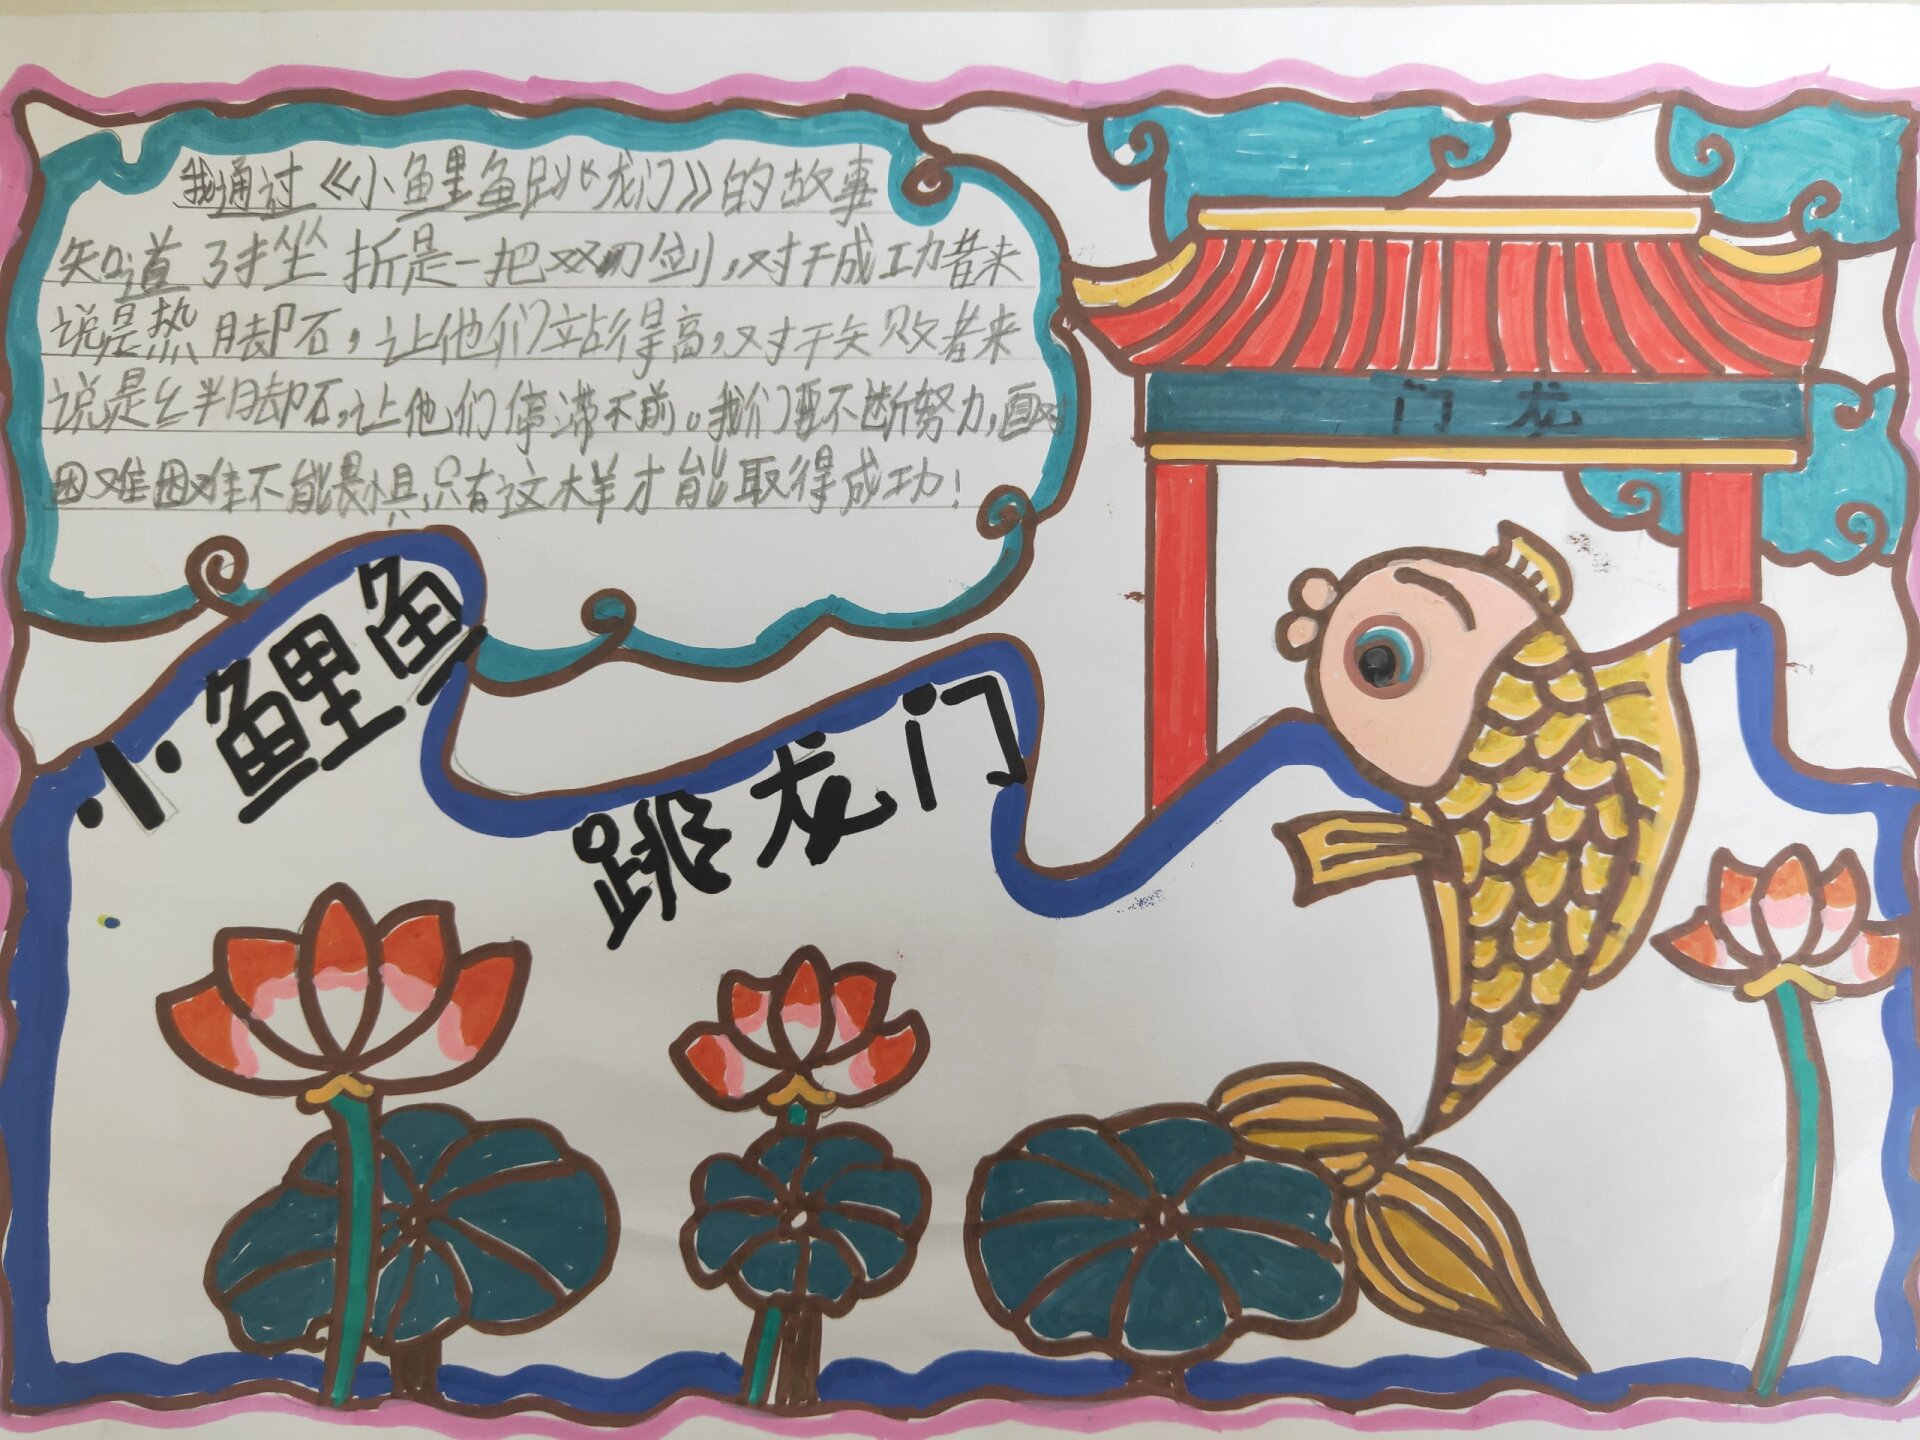 我通过《小鲤鱼跳龙门》的故事
知道了挫折是一把双刃剑,对于成功者来
说是垫脚石,让他们站得高,对于失败者来
说是绊脚石,让他们停滞不前。我们要不断努力,面对
困难困难不能畏惧,只有这样才能取得成功!
门龙
小鲤鱼
跳龙门